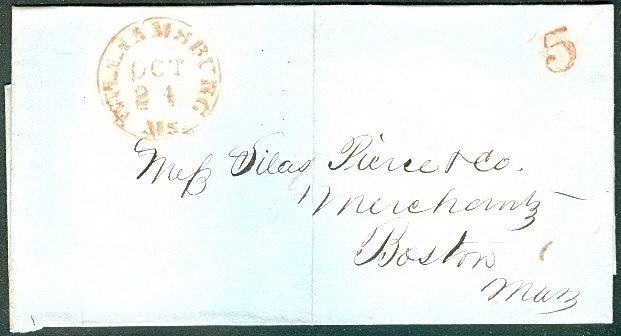 WILLIAMSBURG
OCT
24
Ms.
5
Messs Silas Pierce & Co.
Merchants
Boston
Mass